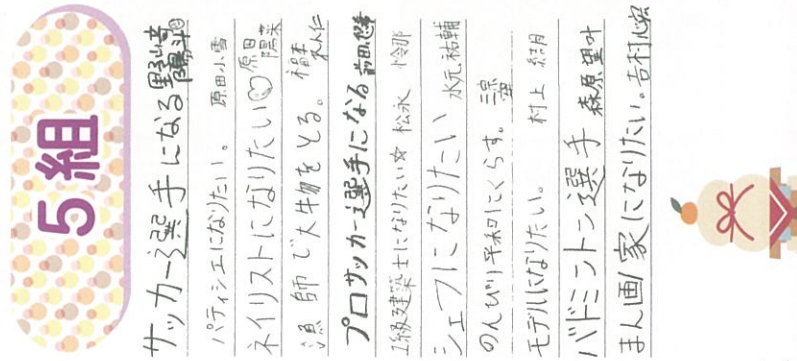 5組
サッカー選手になる 野崎陽斗
パティシエになりたい。 原田小雪
ネイリストになりたい♡ 原田陽菜
漁師で大物をとる。
プロサッカー選手になる 前田悠幸
1級建築士になりたい☆ 松永怜那
シェフになりたい 水元祐輔
のんびり平和にくらす。
モデルになりたい。 村上結月
バドミントン選手 森原里叶
まん画家になりたい。吉村心咲